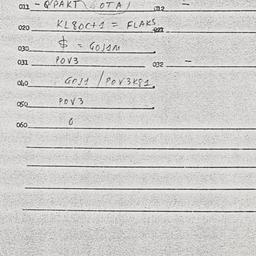 011 - Q/PAKT\ OTA) 012 -
020 KL80C+1 = FLAKS
030 $ = GOJ1M
031 POV3 032 -
040 GOJ1 / POV3KP1
050 POV3
060 0